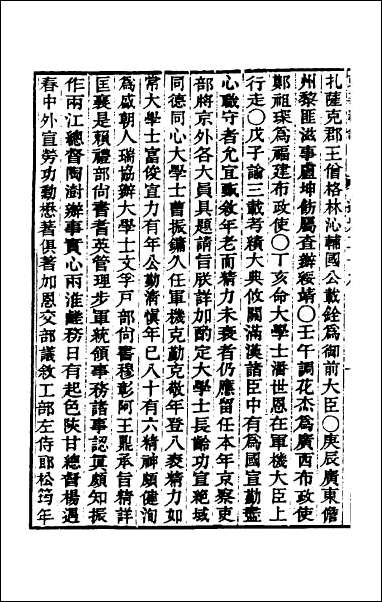 扎薩克郡王僧格林沁輔國公載銓爲御前大臣○庚辰廣東儋
州黎匪滋事盧坤飭屬查辦綏靖○壬午調花杰爲廣西布政使
鄭祖琛爲福建布政使○丁亥命大學士潘世恩在軍機大臣上
行走○戊子諭三載考績大典攸關滿漢諸臣中有爲國宣勤盡
心職守者允宜甄敘年老而精力未衰者仍應留任本年京察吏
部將京外各大員具題請旨朕詳加酌定大學士長齡功宣絕域
同德同心大學士曹振鏞久任軍機克勤克敬年登八袠精力如
常大學士富俊宣力有年公勤清愼年已八十有六精神頗健洵
爲盛朝人瑞協辦大學士文孚戸部尚書穆彰阿王鼎承旨精詳
匡襄是賴禮部尚書耆英管理步軍統領事務諸事認眞頗知振
作兩江總督陶澍辦事實心兩淮鹺務日有起色陝甘總督楊遇
春中外宣勞功勳懋著俱著加恩交部議敘工部左侍郎松筠年